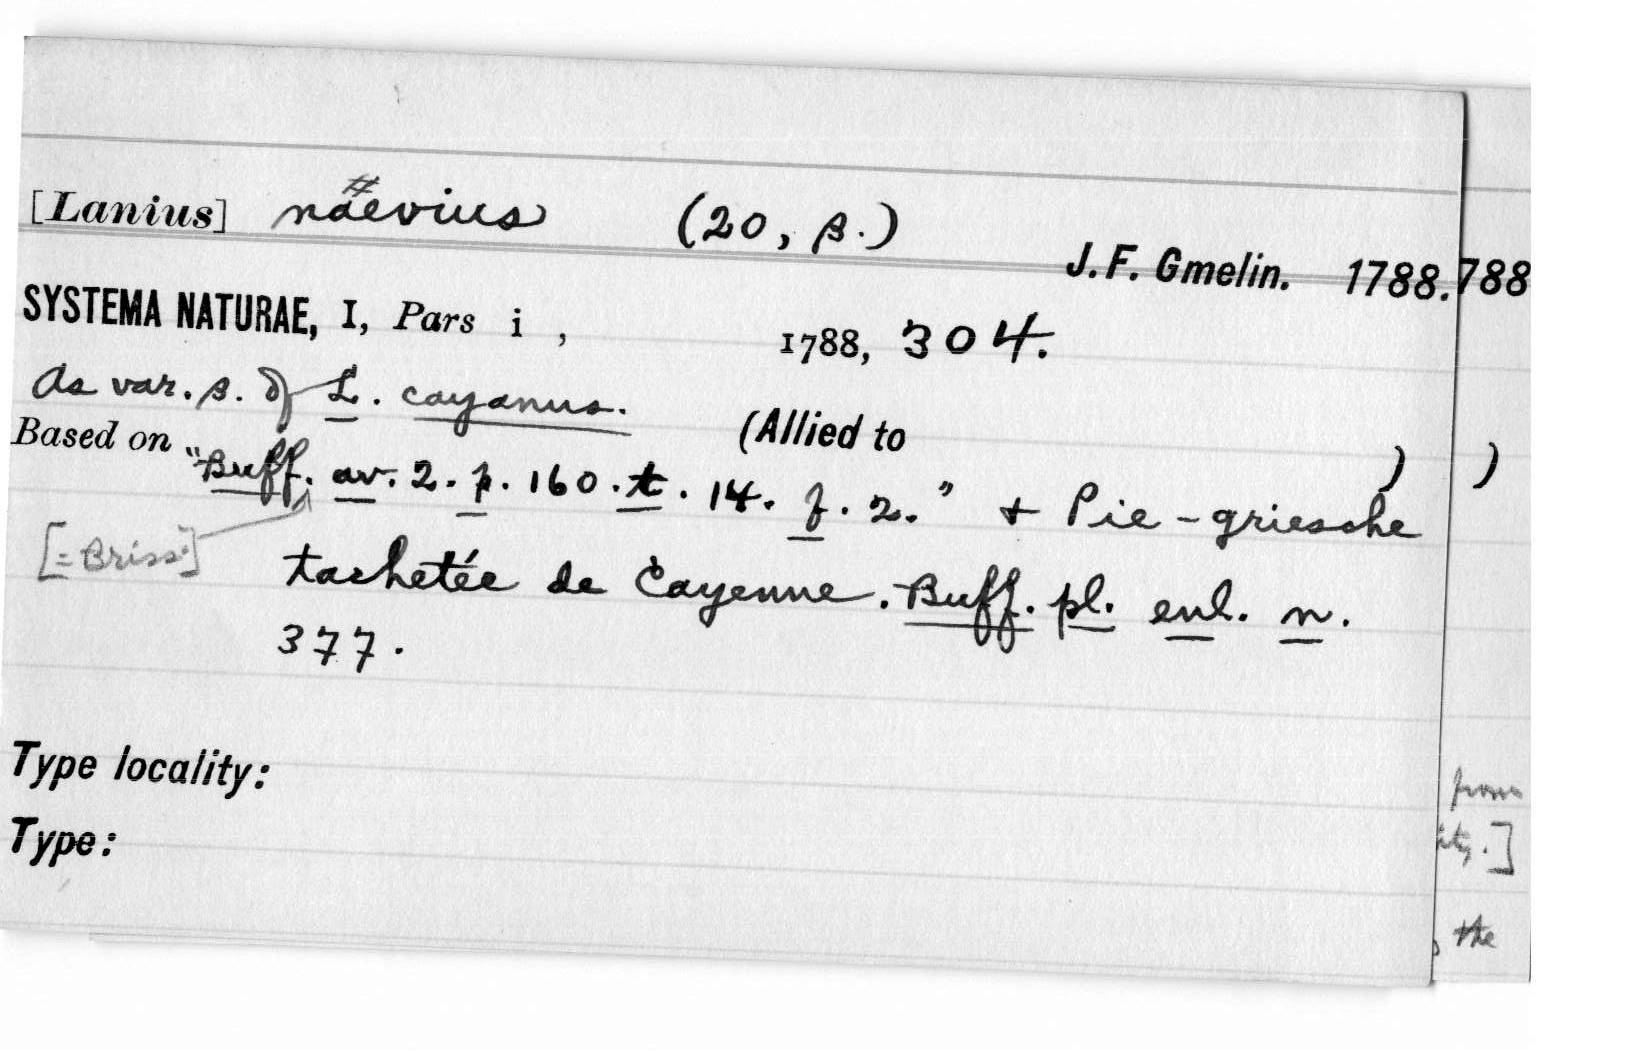 [Lanius] naevius (20, β.)
J. F. Gmelin. 1788. 788
SYSTEMA NATURAE, I, Pars i , 1788, 304.
As var. β. of L. cayanus.
(Allied to ) )
Based on "Buff. av. 2. p. 160. t. 14. f. 2." + Pie-griesche
[=Briss.] tachetée de Cayenne. Buff. pl. enl. n.
377.
Type locality:
from
Type:
ity.]
the